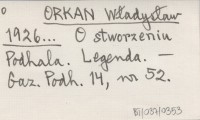 ORKAN Władysław
1926... O stworzeniu
Podhala. Legenda. —
Gaz. Podh. 14, nr 52.
BJ/037/0353